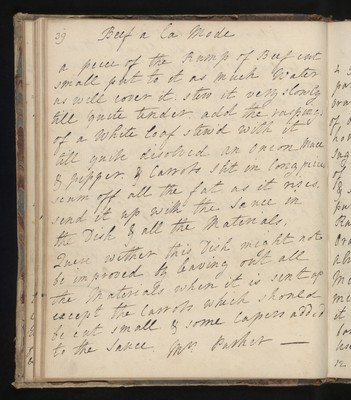 39 Beef a La Mode
a peice of the Rump of Beef cut
small put to it as much Water
as will cover it. stew it very slowly
till quite tender. add the raspings
of a White loaf stew'd with it
till quite disolved. an onion Mace
& pepper. & Carrots slit in long peices
scum off all the fat as it rises.
send it up with the Sauce in
the Dish & all the Materials.
Quere wither this Dish might not
be improved by leaving out all
the Materials when it is sent up
except the Carrots which should
be cut small & some Capers added
to the Sauce. Mrs. Parker —